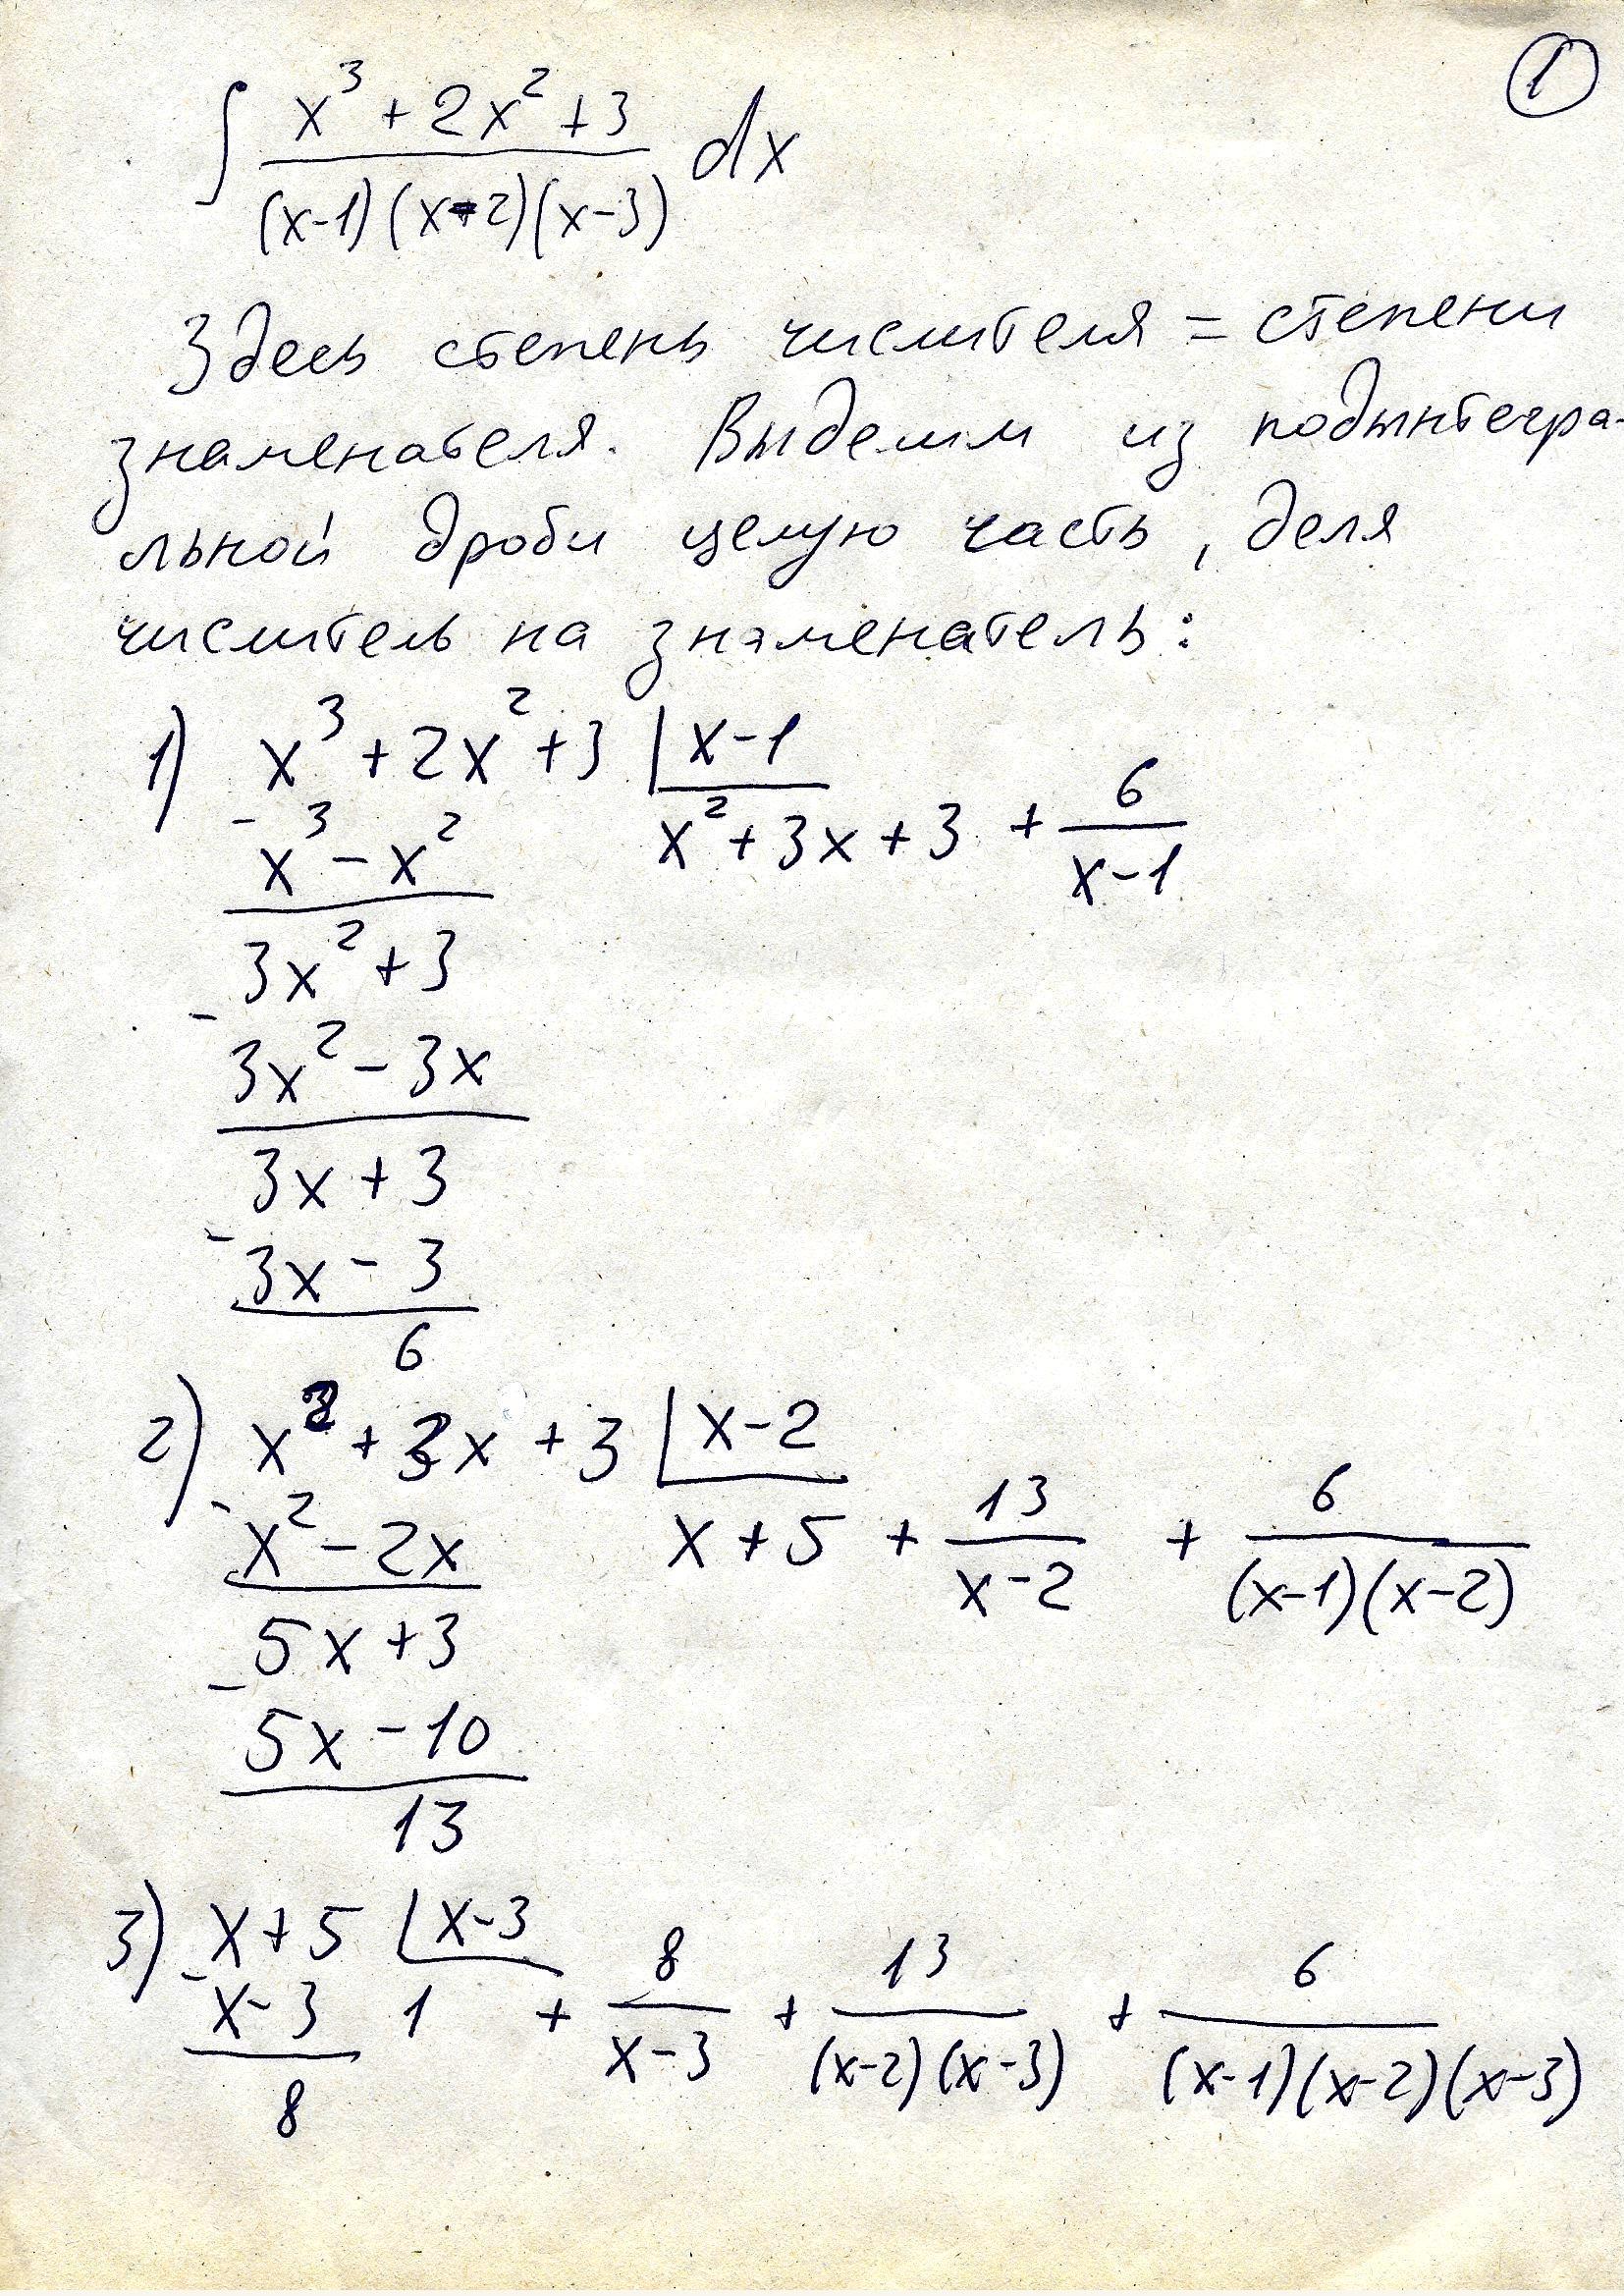 1
∫ (x³ + 2x² + 3) / ((x-1)(x-2)(x-3)) dx
Здесь степень числителя = степени
знаменателя. Выделим из подынтегра-
льной дроби целую часть, деля
числитель на знаменатель:
1) x³ + 2x² + 3 | x-1
x³ - x²   x² + 3x + 3 + 6/(x-1)
3x² + 3
3x² - 3x
3x + 3
3x - 3
6
2) x² + 3x + 3 | x-2
x² - 2x   x + 5 + 13/(x-2) + 6/((x-1)(x-2))
5x + 3
5x - 10
13
3) x + 5 | x-3
x - 3   1 + 8/(x-3) + 13/((x-2)(x-3)) + 6/((x-1)(x-2)(x-3))
8